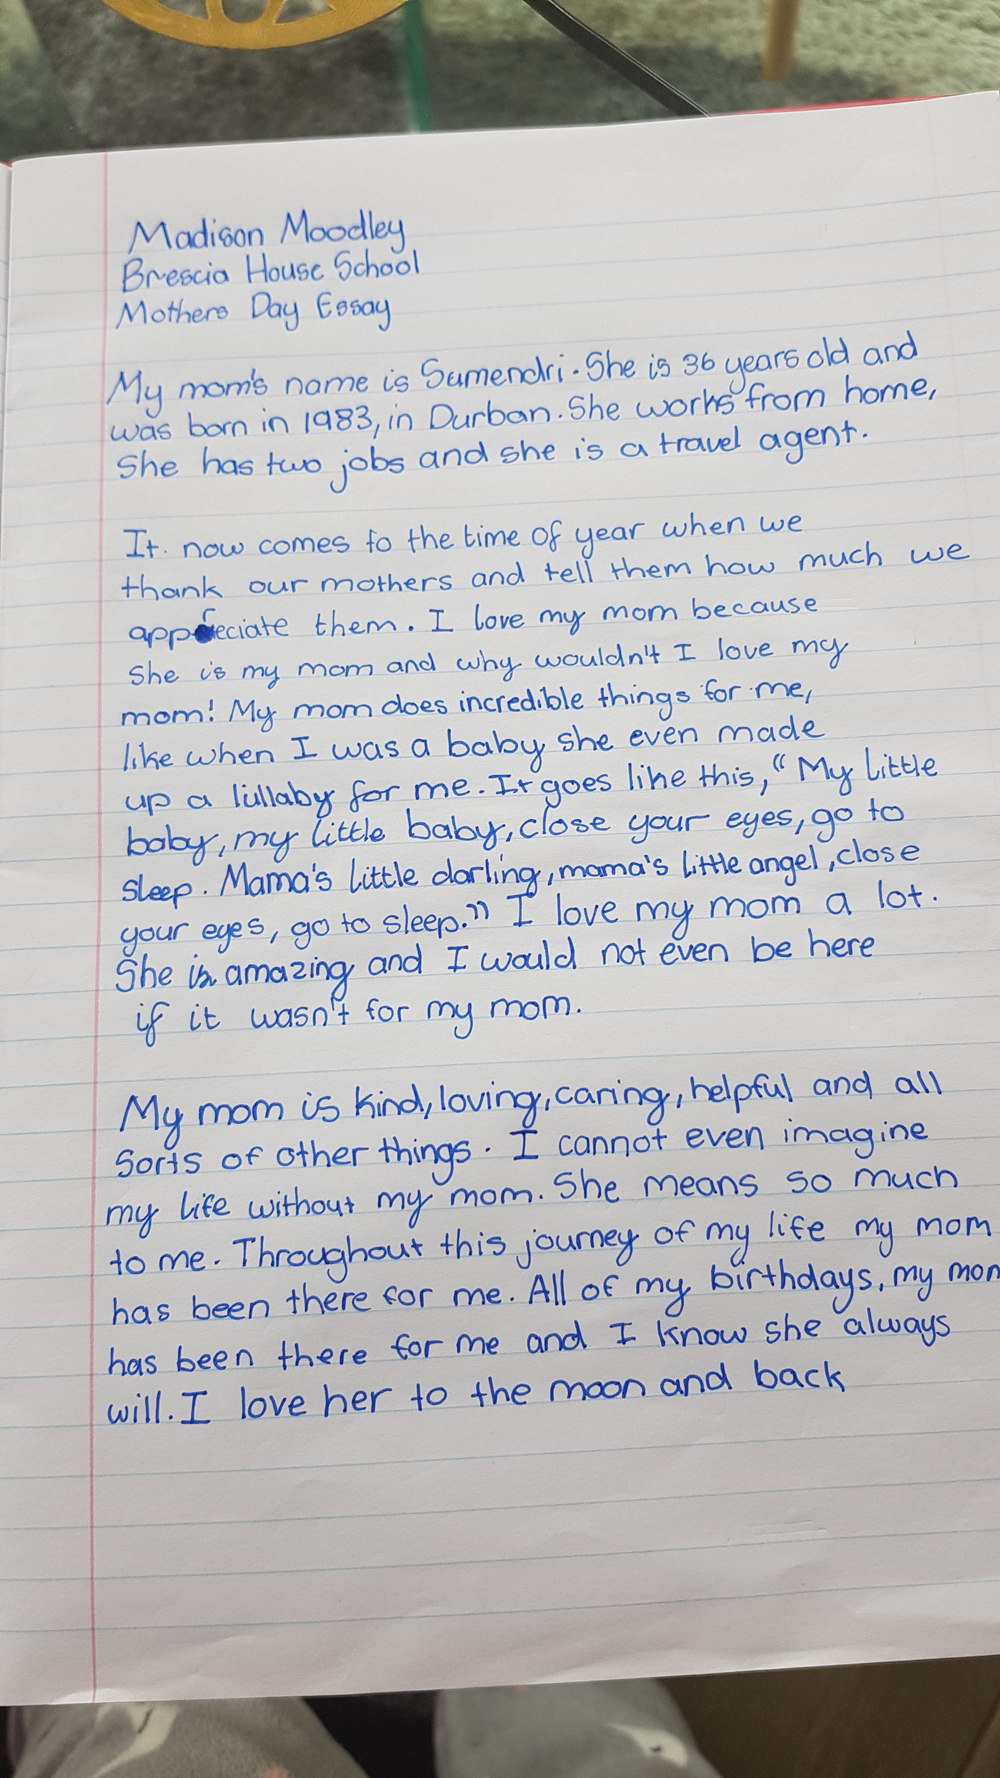 Madison Moodley
Brescia House School
Mothers Day Essay
My mom's name is Sumendri. She is 36 years old and
was born in 1983, in Durban. She works from home,
She has two jobs and she is a travel agent.
It now comes to the time of year when we
thank our mothers and tell them how much we
appreciate them. I love my mom because
she is my mom and why wouldn't I love my
mom! My mom does incredible things for me,
like when I was a baby she even made
up a lullaby for me. It goes like this, "My little
baby, my little baby, close your eyes, go to
sleep. Mama's little darling, mama's little angel, close
your eyes, go to sleep." I love my mom a lot.
She is amazing and I would not even be here
if it wasn't for my mom.
My mom is kind, loving, caring, helpful and all
sorts of other things. I cannot even imagine
my life without my mom. She means so much
to me. Throughout this journey of my life my mom
has been there for me. All of my birthdays, my mom
has been there for me and I know she always
will. I love her to the moon and back